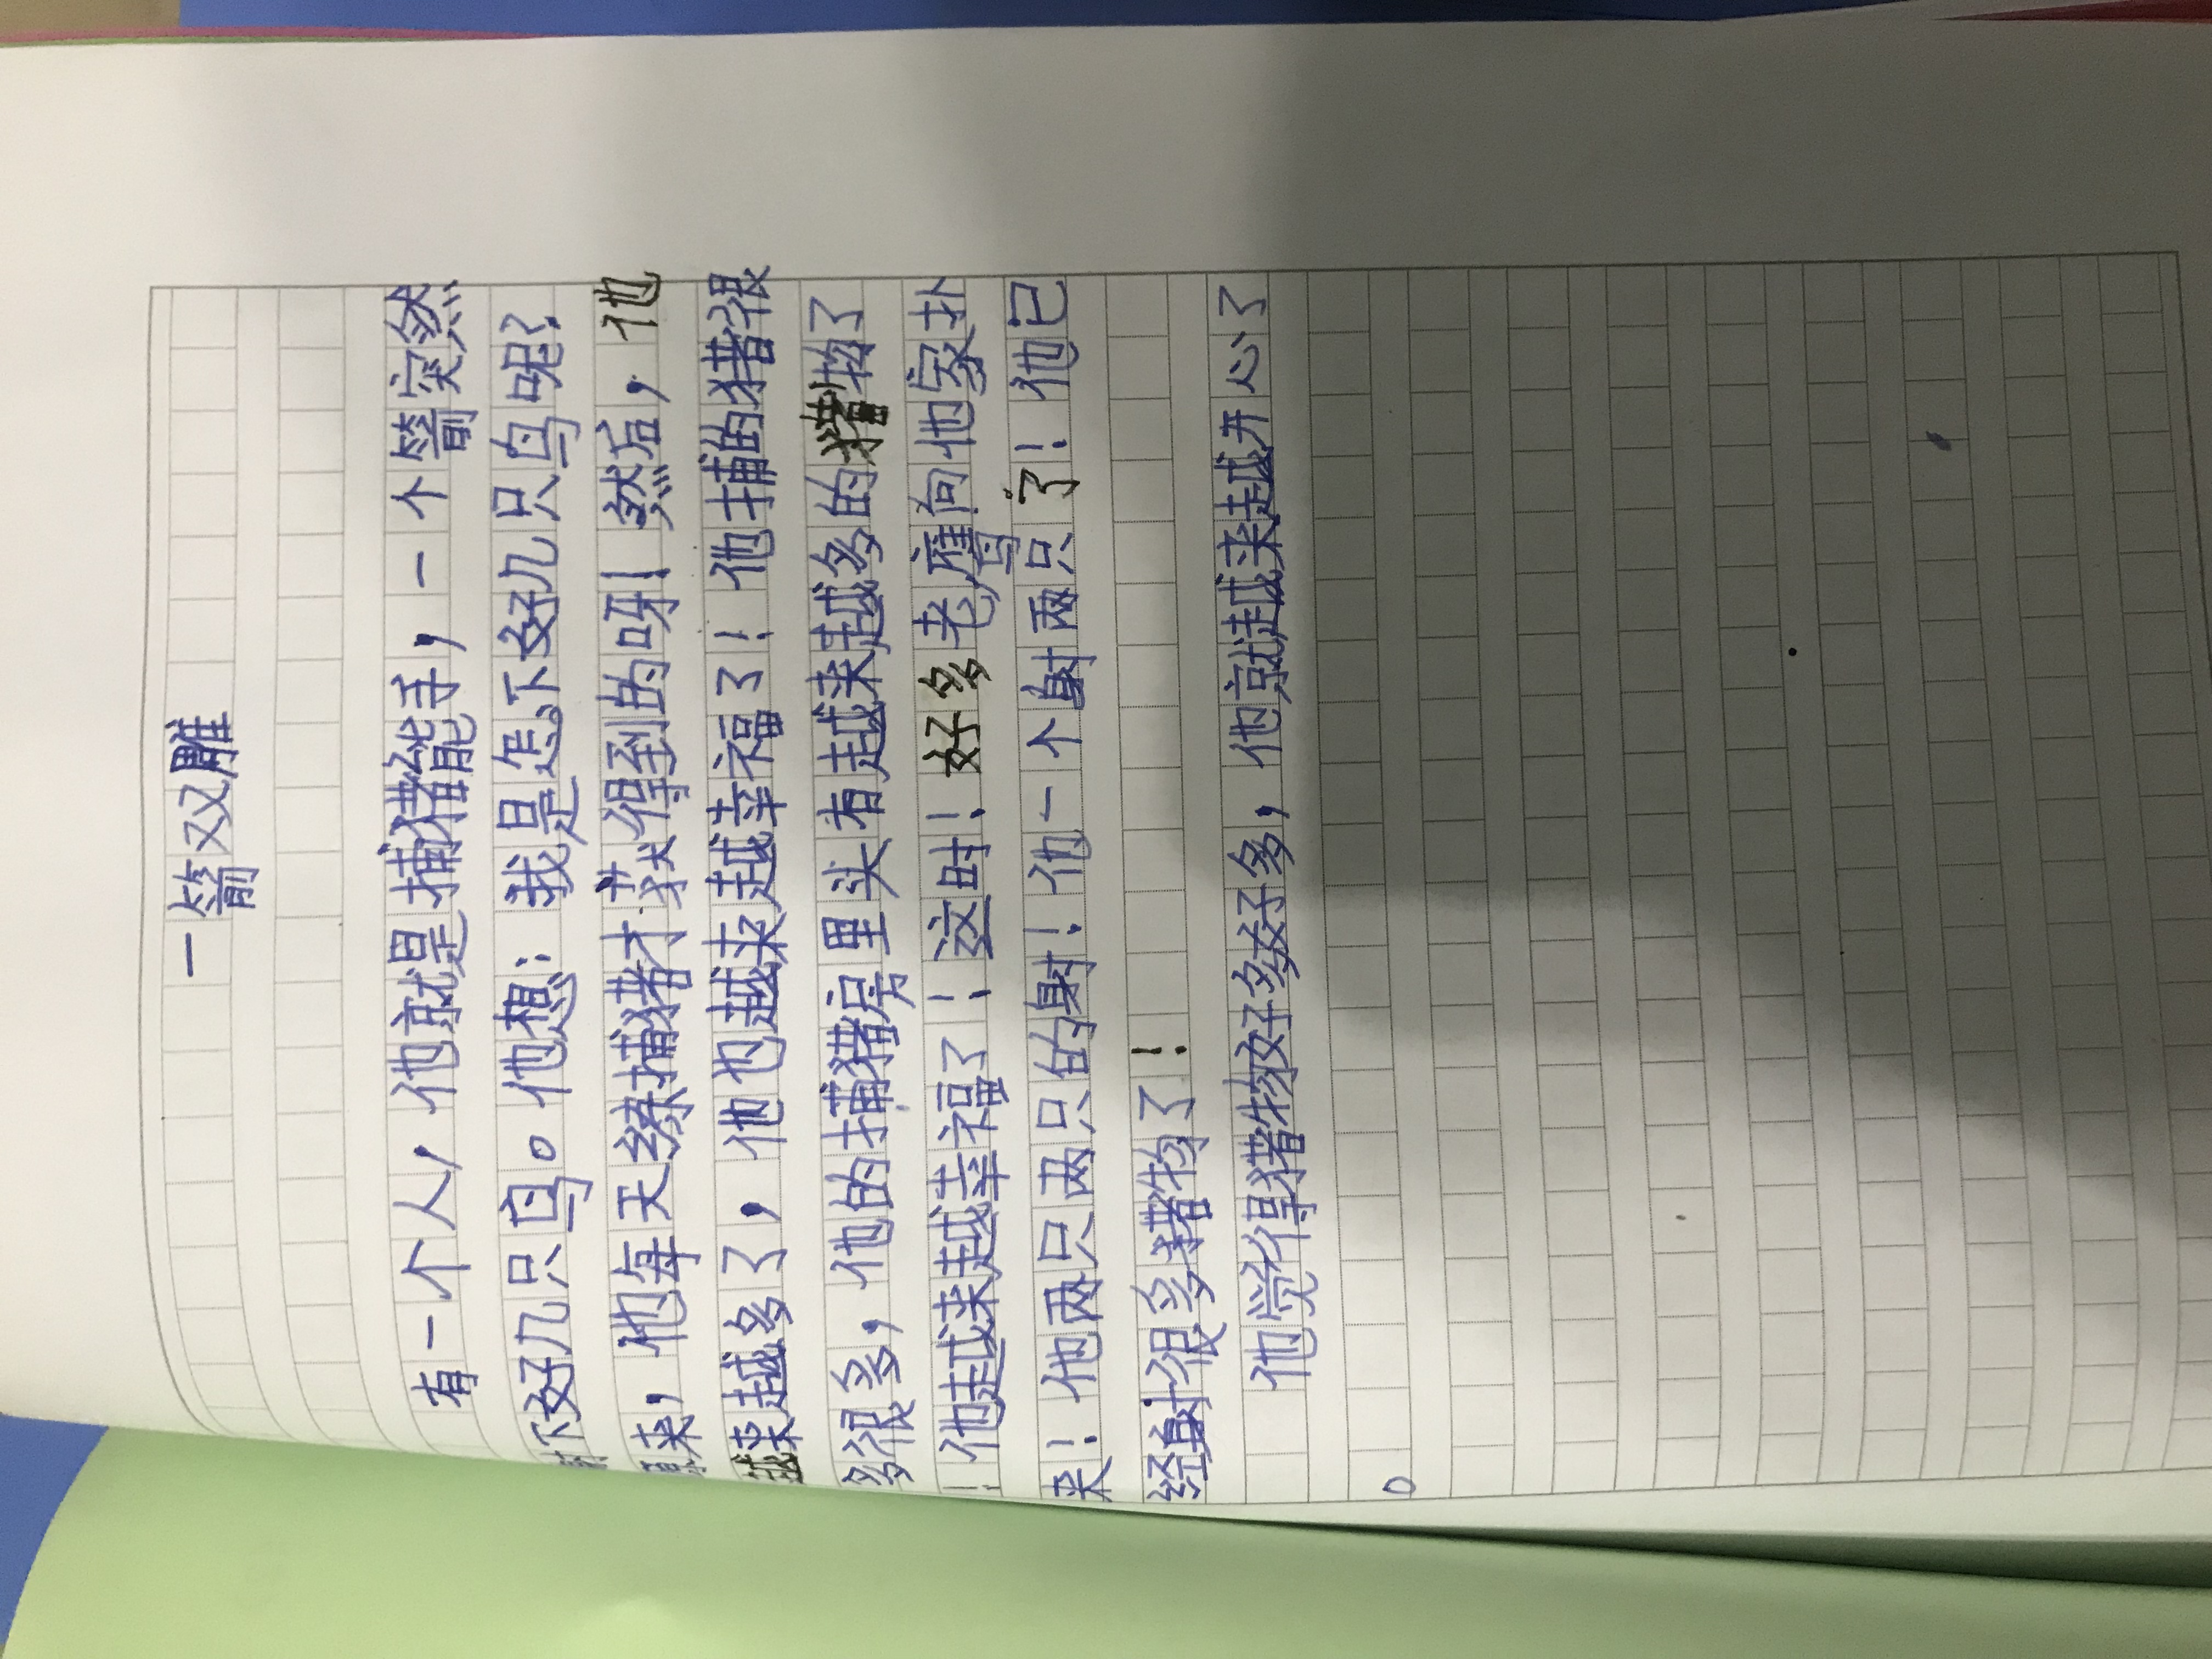 一箭双雕
有一个人，他就是捕猪能手，一个箭突然
下好几只鸟。他想：我是怎下好几只鸟呢？
原来，他每天练捕猪才获得到的呀！然后，他
越来越多了，他也越来越幸福了！他捕的猪很
多很多，他的捕猪房里头有越来越多的猪物了
！他越来越幸福了！这时！好多老鹰向他家扑
来！他两只两只的射！他一个射两只了！他已
经射很多猪物了！
他觉得猪物好多好多，他就越来越开心了
。